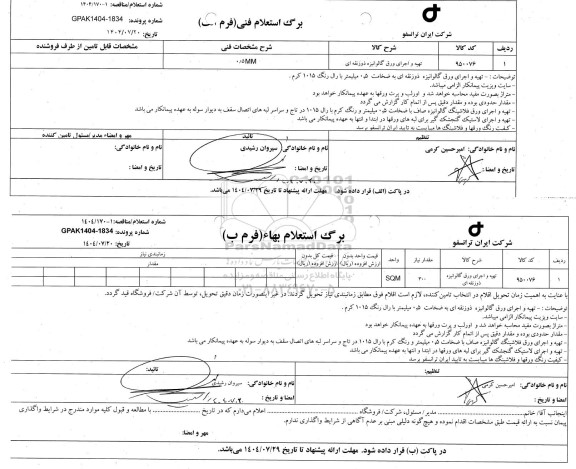 شماره استعلام/مناقصه: ۱-۱۴۰۴/۱۷۰
برگ استعلام فنی(فرم الف)
شماره پرونده: GPAK1404-1834
تاریخ: ۱۴۰۴/۰۷/۲۰
شرکت ایران ترانسفو
ردیف کد کالا شرح کالا شرح مشخصات فنی مشخصات قابل تامین از طرف فروشنده
۱ ۹۵۰۰۷۶ تهیه و اجرای ورق گالوانیزه ذوزنقه ای ۰.۵MM
توضیحات : - تهیه و اجرای ورق گالوانیزه ذوزنقه ای به ضخامت ۰.۵ میلیمتر با رال رنگ ۱۰۱۵ کرم .
- سایت ویزیت پیمانکار الزامی میباشد.
- متراژ بصورت مفید محاسبه خواهد شد و اورلب و پرت ورقها به عهده پیمانکار خواهد بود
- مقدار حدودی بوده و مقدار دقیق پس از اتمام کار گزارش می گردد
- تهیه و اجرای ورق فلاشینگ گالوانیزه صاف با ضخامت ۰.۵ میلیمتر و رنگ کرم با رال ۱۰۱۵ در تاج و سراسر لبه های اتصال سقف به دیوار سوله به عهده پیمانکار می باشد
- تهیه و اجرای لاستیک گنجشک گیر برای لبه های ورقها در ابتدا و انتها به عهده پیمانکار می باشد
- کیفیت رنگ ورقها و فلاشینگ ها میبایست به تایید ایران ترانسفو برسد
تنظیم تائید مهر و امضاء مدیر/مسئول تامین کننده
نام و نام خانوادگی: امیرحسین کرمی نام و نام خانوادگی: سیروان رشیدی نام و نام خانوادگی:
تاریخ و امضا : تاریخ و امضا : تاریخ و امضا :
در پاکت (الف) قرار داده شود. مهلت ارائه پیشنهاد تا تاریخ ۱۴۰۴/۰۷/۲۹ می‌باشد.
شماره استعلام/مناقصه: ۱-۱۴۰۴/۱۷۰
برگ استعلام بهاء(فرم ب)
شماره پرونده: GPAK1404-1834
تاریخ: ۱۴۰۴/۰۷/۲۰
شرکت ایران ترانسفو
ParsNamadData
ردیف کد کالا شرح کالا مقدار نیاز واحد قیمت واحد بدون ارزش افزوده (ریال) قیمت کل بدون ارزش افزوده (ریال) زمانبندی نیاز
مقدار
۱ ۹۵۰۰۷۶ تهیه و اجرای ورق گالوانیزه ذوزنقه ای ۳۰۰ SQM
با عنایت به اهمیت زمان تحویل اقلام در انتخاب تامین کننده، لازم است اقلام فوق مطابق زمانبندی نیاز تحویل گردند. در غیر اینصورت زمان دقیق تحویل، توسط آن شرکت/ فروشگاه قید گردد.
توضیحات : - تهیه و اجرای ورق گالوانیزه ذوزنقه ای به ضخامت ۰.۵ میلیمتر با رال رنگ ۱۰۱۵ کرم .
- سایت ویزیت پیمانکار الزامی میباشد.
- متراژ بصورت مفید محاسبه خواهد شد و اورلب و پرت ورقها به عهده پیمانکار خواهد بود
- مقدار حدودی بوده و مقدار دقیق پس از اتمام کار گزارش می گردد
- تهیه و اجرای ورق فلاشینگ گالوانیزه صاف با ضخامت ۰.۵ میلیمتر و رنگ کرم با رال ۱۰۱۵ در تاج و سراسر لبه های اتصال سقف به دیوار سوله به عهده پیمانکار می باشد
- تهیه و اجرای لاستیک گنجشک گیر برای لبه های ورقها در ابتدا و انتها به عهده پیمانکار می باشد
- کیفیت رنگ ورقها و فلاشینگ ها میبایست به تایید ایران ترانسفو برسد
تنظیم: تائید:
نام و نام خانوادگی: امیرحسین کرمی نام و نام خانوادگی: سیروان رشیدی نام و نام خانوادگی:
تاریخ و امضا : تاریخ و امضا : امضا و تاریخ :
اینجانب آقا/ خانم مدیر/مسئول، شرکت/ فروشگاه اعلام می‌دارم که در تاریخ با مطالعه و قبول کلیه موارد مندرج در شرایط واگذاری
پیمان نسبت به ارائه قیمت طبق مشخصات اقدام نموده و هیچ‌گونه دلیلی مبنی بر عدم آگاهی از شرایط واگذاری ندارم.
مهر و امضا:
در پاکت (ب) قرار داده شود. مهلت ارائه پیشنهاد تا تاریخ ۱۴۰۴/۰۷/۲۹ می‌باشد.